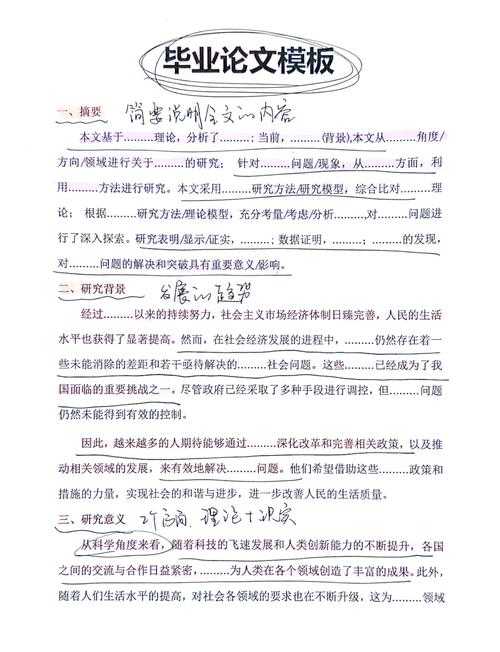 毕业论文模板
一、摘要 简要说明全文的内容
本文基于.........理论，分析了.........; 当前，.........(背景),本文从.........角度/
方向/领域进行关于.........的研究； 针对.........问题/现象，从.........方面，利
用.........方法进行研究。本文采用.........研究方法/研究模型，综合比对.........理
论； 根据.........研究方法/理论模型，充分考量/考虑/分析.........,对.........问题进
行了深入探索。研究表明/显示/证实，.........; 数据证明，.........; .........的发现，
对.........问题的解决和突破具有重要意义/影响。
二、研究背景 发展的趋势
经过.........以来的持续努力，社会主义市场经济体制日臻完善，人民的生活
水平也获得了显著提高。然而，在社会经济发展的进程中，.........仍然存在着一
些未能消除的差距和若干亟待解决的.........社会问题。这些.........已经成为了我
国面临的重要挑战之一，尽管政府已经采取了多种手段进行调控，但.........问题
仍然未能得到有效的控制。
因此，越来越多的人期待能够通过.........深化改革和完善相关政策，以及推
动相关领域的发展，来有效地解决.........问题。他们希望借助这些.........政策和
措施的力量，实现社会的和谐与进步，进一步改善人民的生活质量。
三、研究意义 2个方面 理论+现实
从科学角度来看，随着科技的飞速发展和人类创新能力的不断提升，各国
之间的交流与合作日益紧密，.........为人类在各个领域创造了丰富的成果。此外，
随着人们生活水平的提高，对社会各领域的要求也在不断升级，这为.........领域